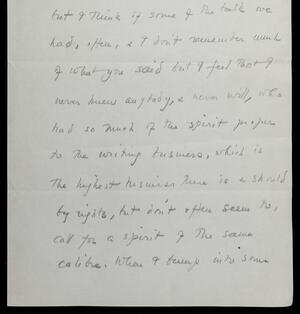 but I think of some of the talk we
had, often, & I don't remember much
of what you said but I feel that I
never knew anybody, & never will, who
had so much of the spirit proper
to the writing business, which is
the highest business there is & should
by rights, but don't often seem to,
call for a spirit of the same
calibre. When I bump into some